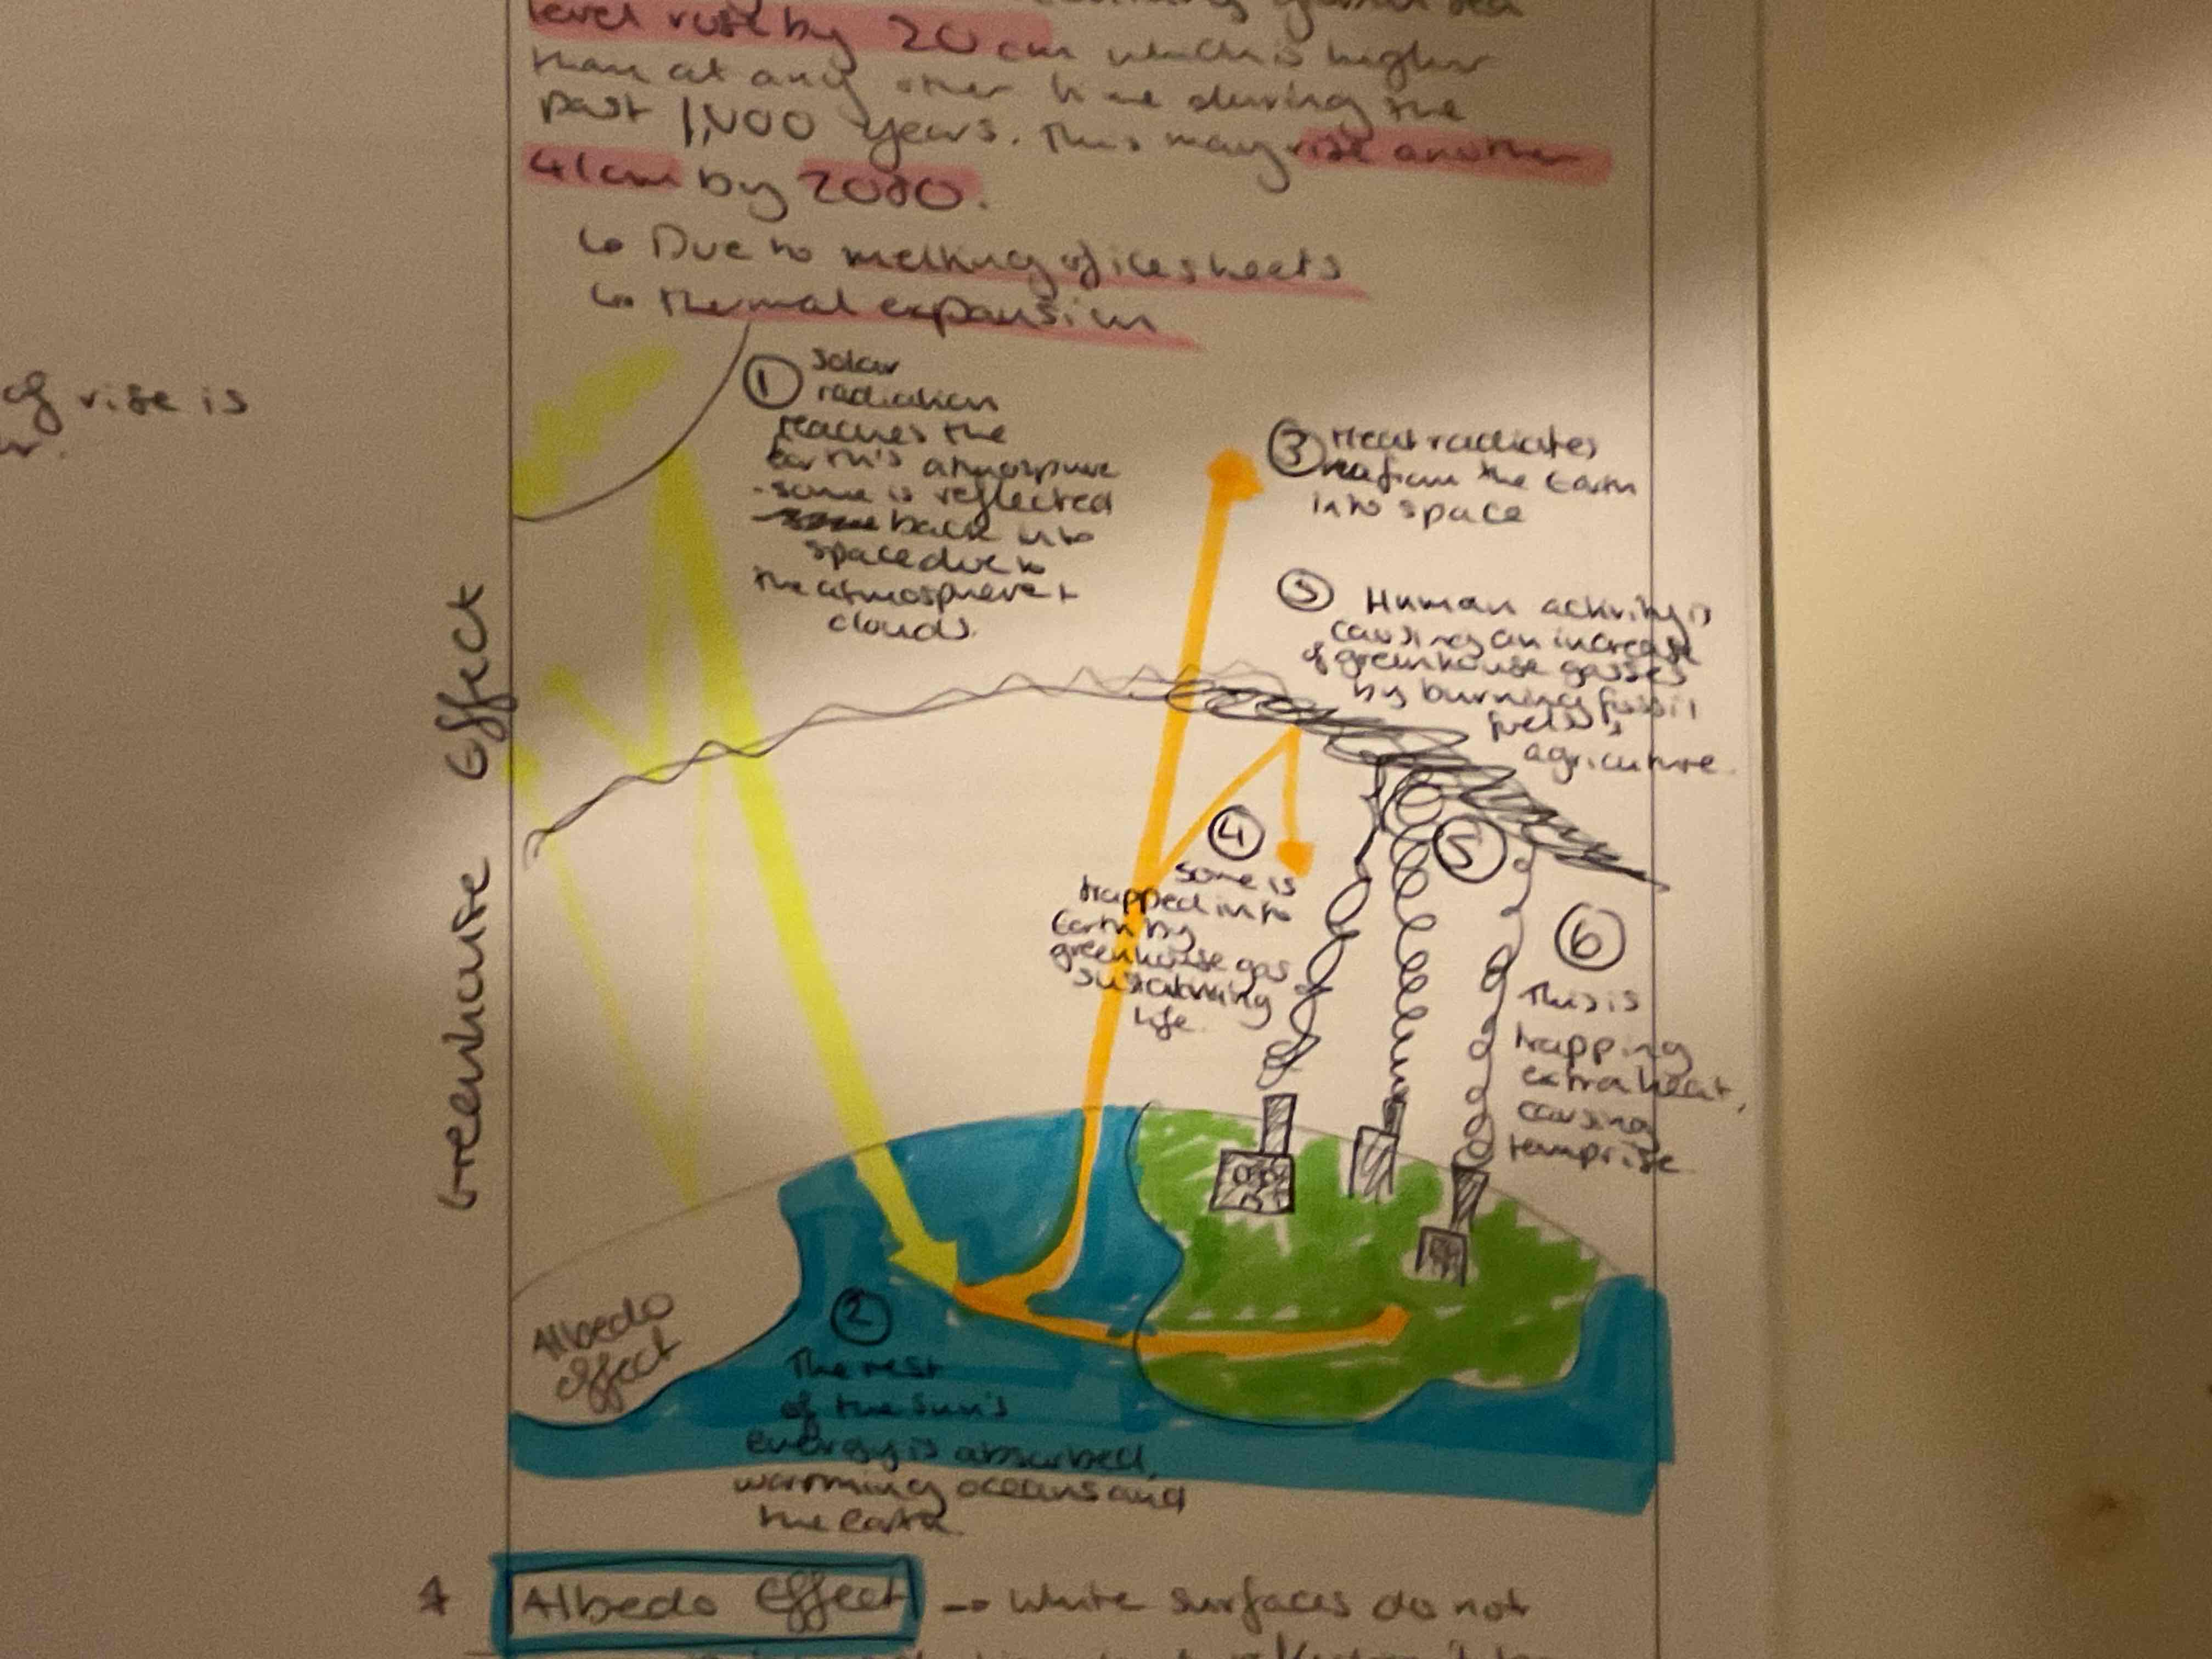 level rose by 20cm which is higher
than at any other time during the
past 1,000 years. This may rise another
41cm by 2080.
↳ Due to melting of ice sheets
↳ thermal expansion
of rise is
Greenhouse Effect
① Solar
radiation
reaches the
Earth's atmosphere
- some is reflected
back into
space due to
the atmosphere +
clouds.
③ Heat radiates
from the Earth
into space
⑤ Human activity is
causing an increase
of greenhouse gasses
by burning fossil
fuels,
agriculture.
④
some is
trapped into
Earth by
greenhouse gas
sustaining
life.
⑤
⑥
This is
trapping
extra heat,
causing
temp rise.
Albedo
effect
②
The rest
of the Sun's
energy is absorbed,
warming oceans and
the Earth
* Albedo Effect → White surfaces do not